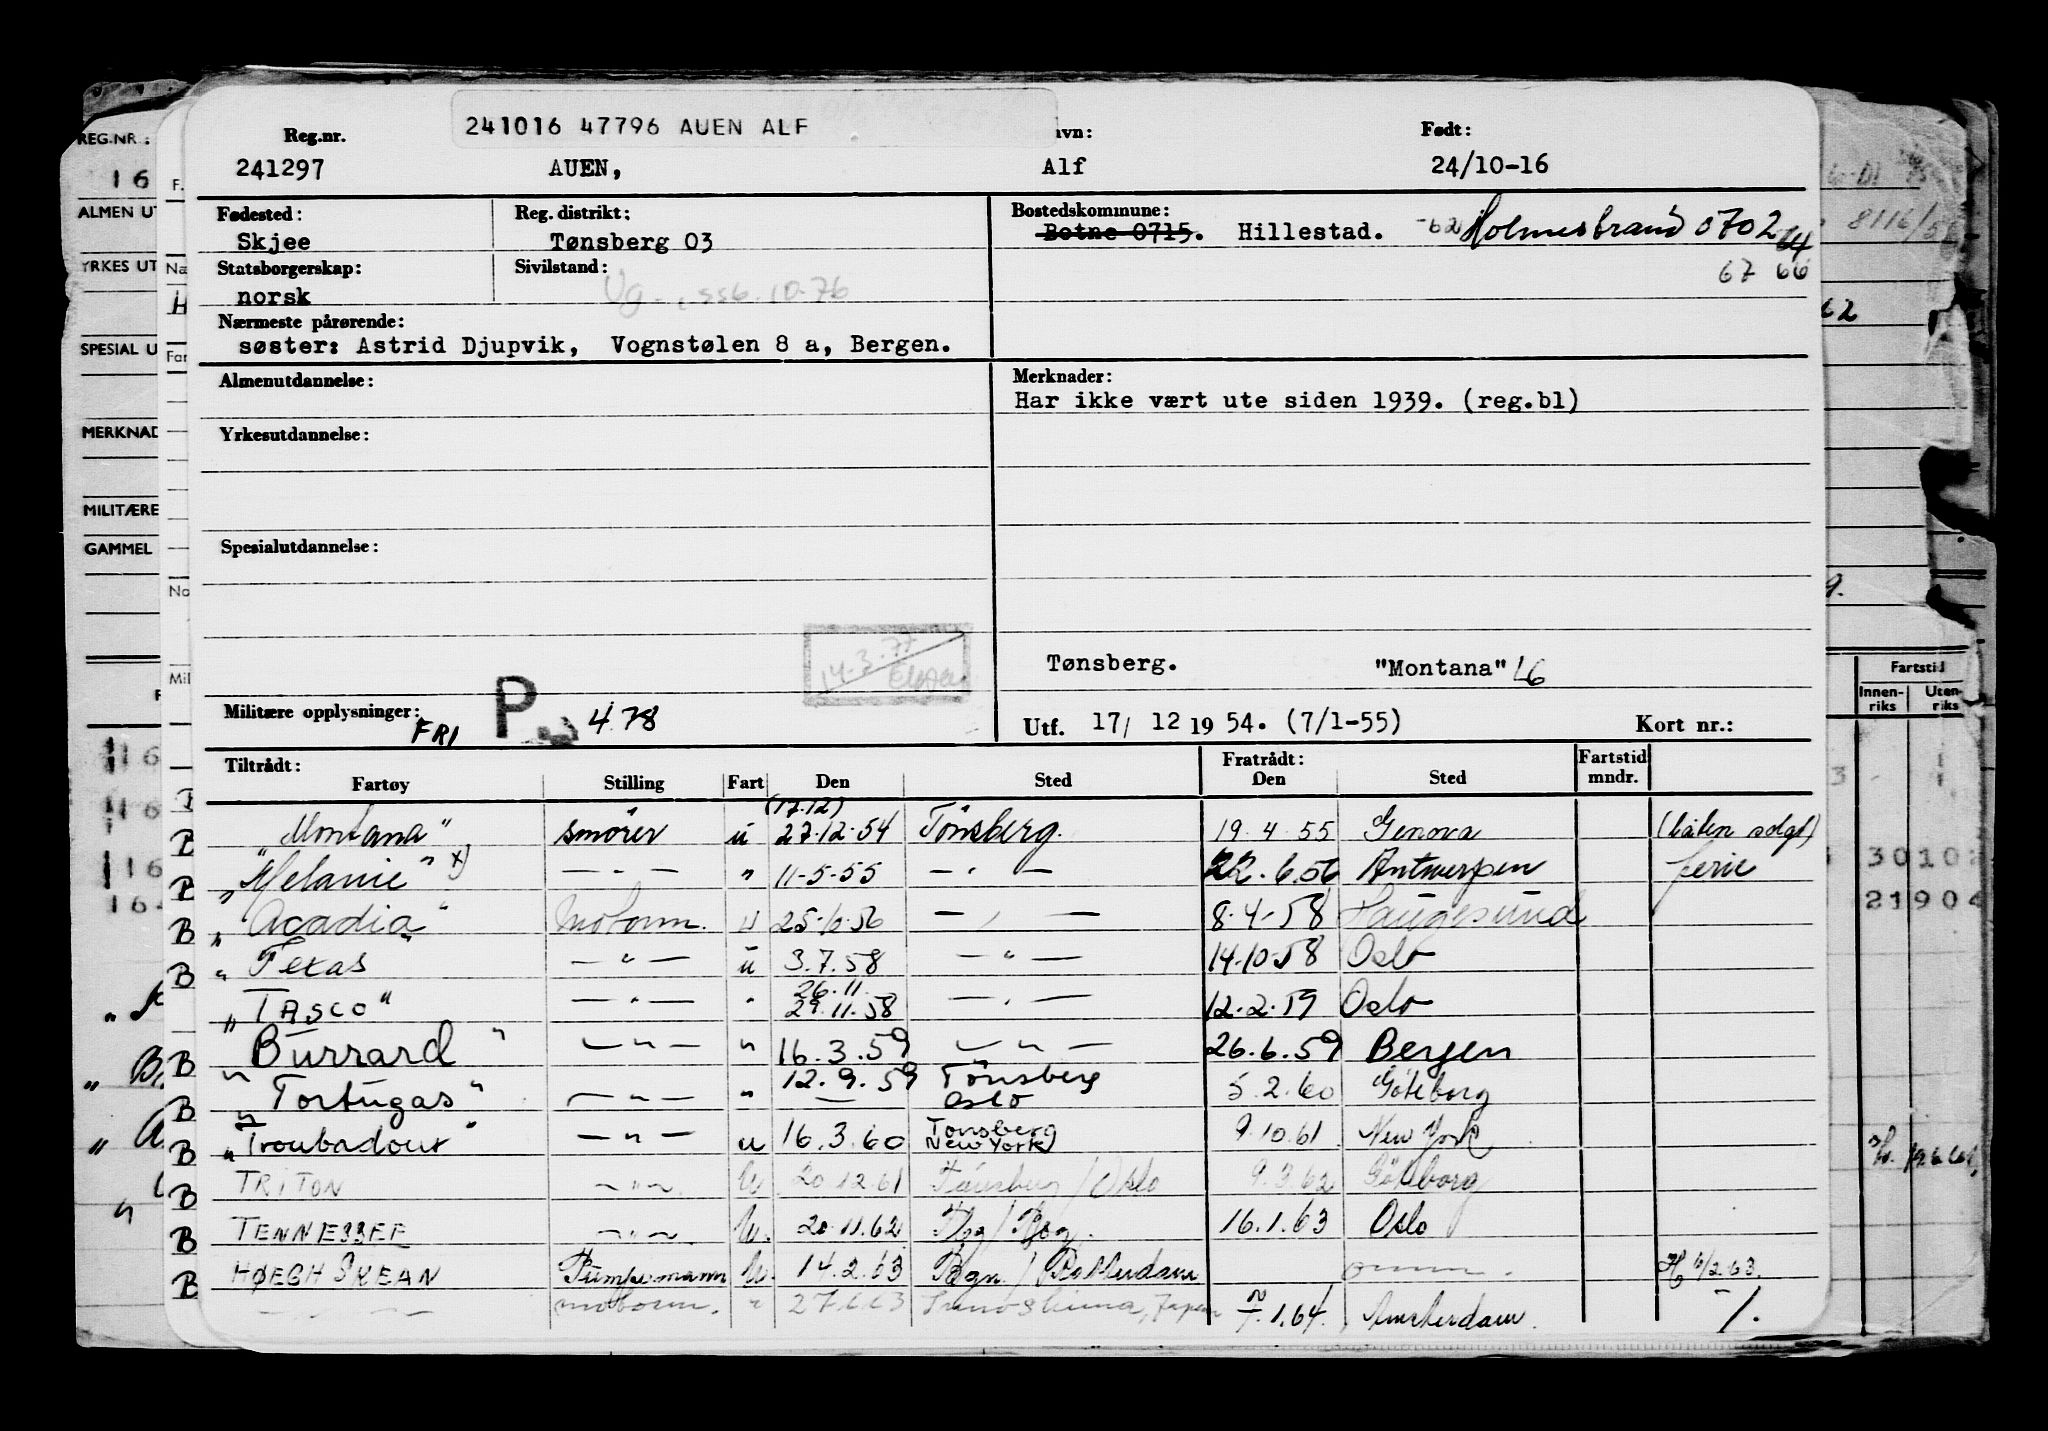 241016 47796 AUEN ALF
Reg.nr. Født:
241297 AUEN, Alf 24/10-16
Fødested: Reg. distrikt: Bostedskommune:
Skjee Tønsberg 03 Botne 0715. Hillestad. -62 Holmestrand 0702 64
Statsborgerskap: Sivilstand: 67 66
norsk
Nærmeste pårørende:
søster: Astrid Djupvik, Vognstølen 8 a, Bergen.
Almenutdannelse: Merknader:
Har ikke vært ute siden 1939. (reg.bl)
Yrkesutdannelse:
Spesialutdannelse:
14-3-77
Tønsberg. "Montana" 16
Militære opplysninger: FRI P 4 78
Utf. 17/ 12 19 54. (7/1-55) Kort nr.:
Tiltrådt: Fratrådt: Fartstid
Fartøy Stilling Fart Den Sted Den Sted mndr.
(17.12)
B "Montana" smører u 27-12-54 Tønsberg. 19 4 55 Genova (båten solgt)
B "Melanie" x) — " — " 11-5-55 — " — 22.6.56 Antwerpen ferie
B "Acadia" Motorm. u 25-6-56 — " — 8-4-58 Haugesund
B "Texas — " — u 3.7.58 — " — 14-10-58 Oslo
26.11.
"TASCO" — " — " 29.11.58 — " — 12.2.59 Oslo
B "Burrard" — " — " 16.3.59 — " — 26.6.59 Bergen
B "Tortugas" — " — " 12.9.59 Tønsberg Oslo 5.2.60 Göteborg
B "Troubadour" — " — u 16.3.60 Tønsberg New York) 9.10.61 New York
B TRITON — " — u 20.12.61 Tønsberg / Oslo 9.3.62 Göteborg
B TENNESSEE — " — u. 20.11.62 Tbg / Bgg. 16.1.63 Oslo
B HØEGH SKEAN Pumpemann u. 14.2.63 Bgn. / Rotterdam H 6/2.63.
— " — motorm. " 27.6.63 Japan 7.1.64. Amsterdam. /.
REG.NR.:
16
ALMEN UT
YRKES UT
SPESIAL U
MERKNAD
MILITÆRE
GAMMEL
8116/5
62
Fartstid
Innen-riks Uten-riks
30102
21904